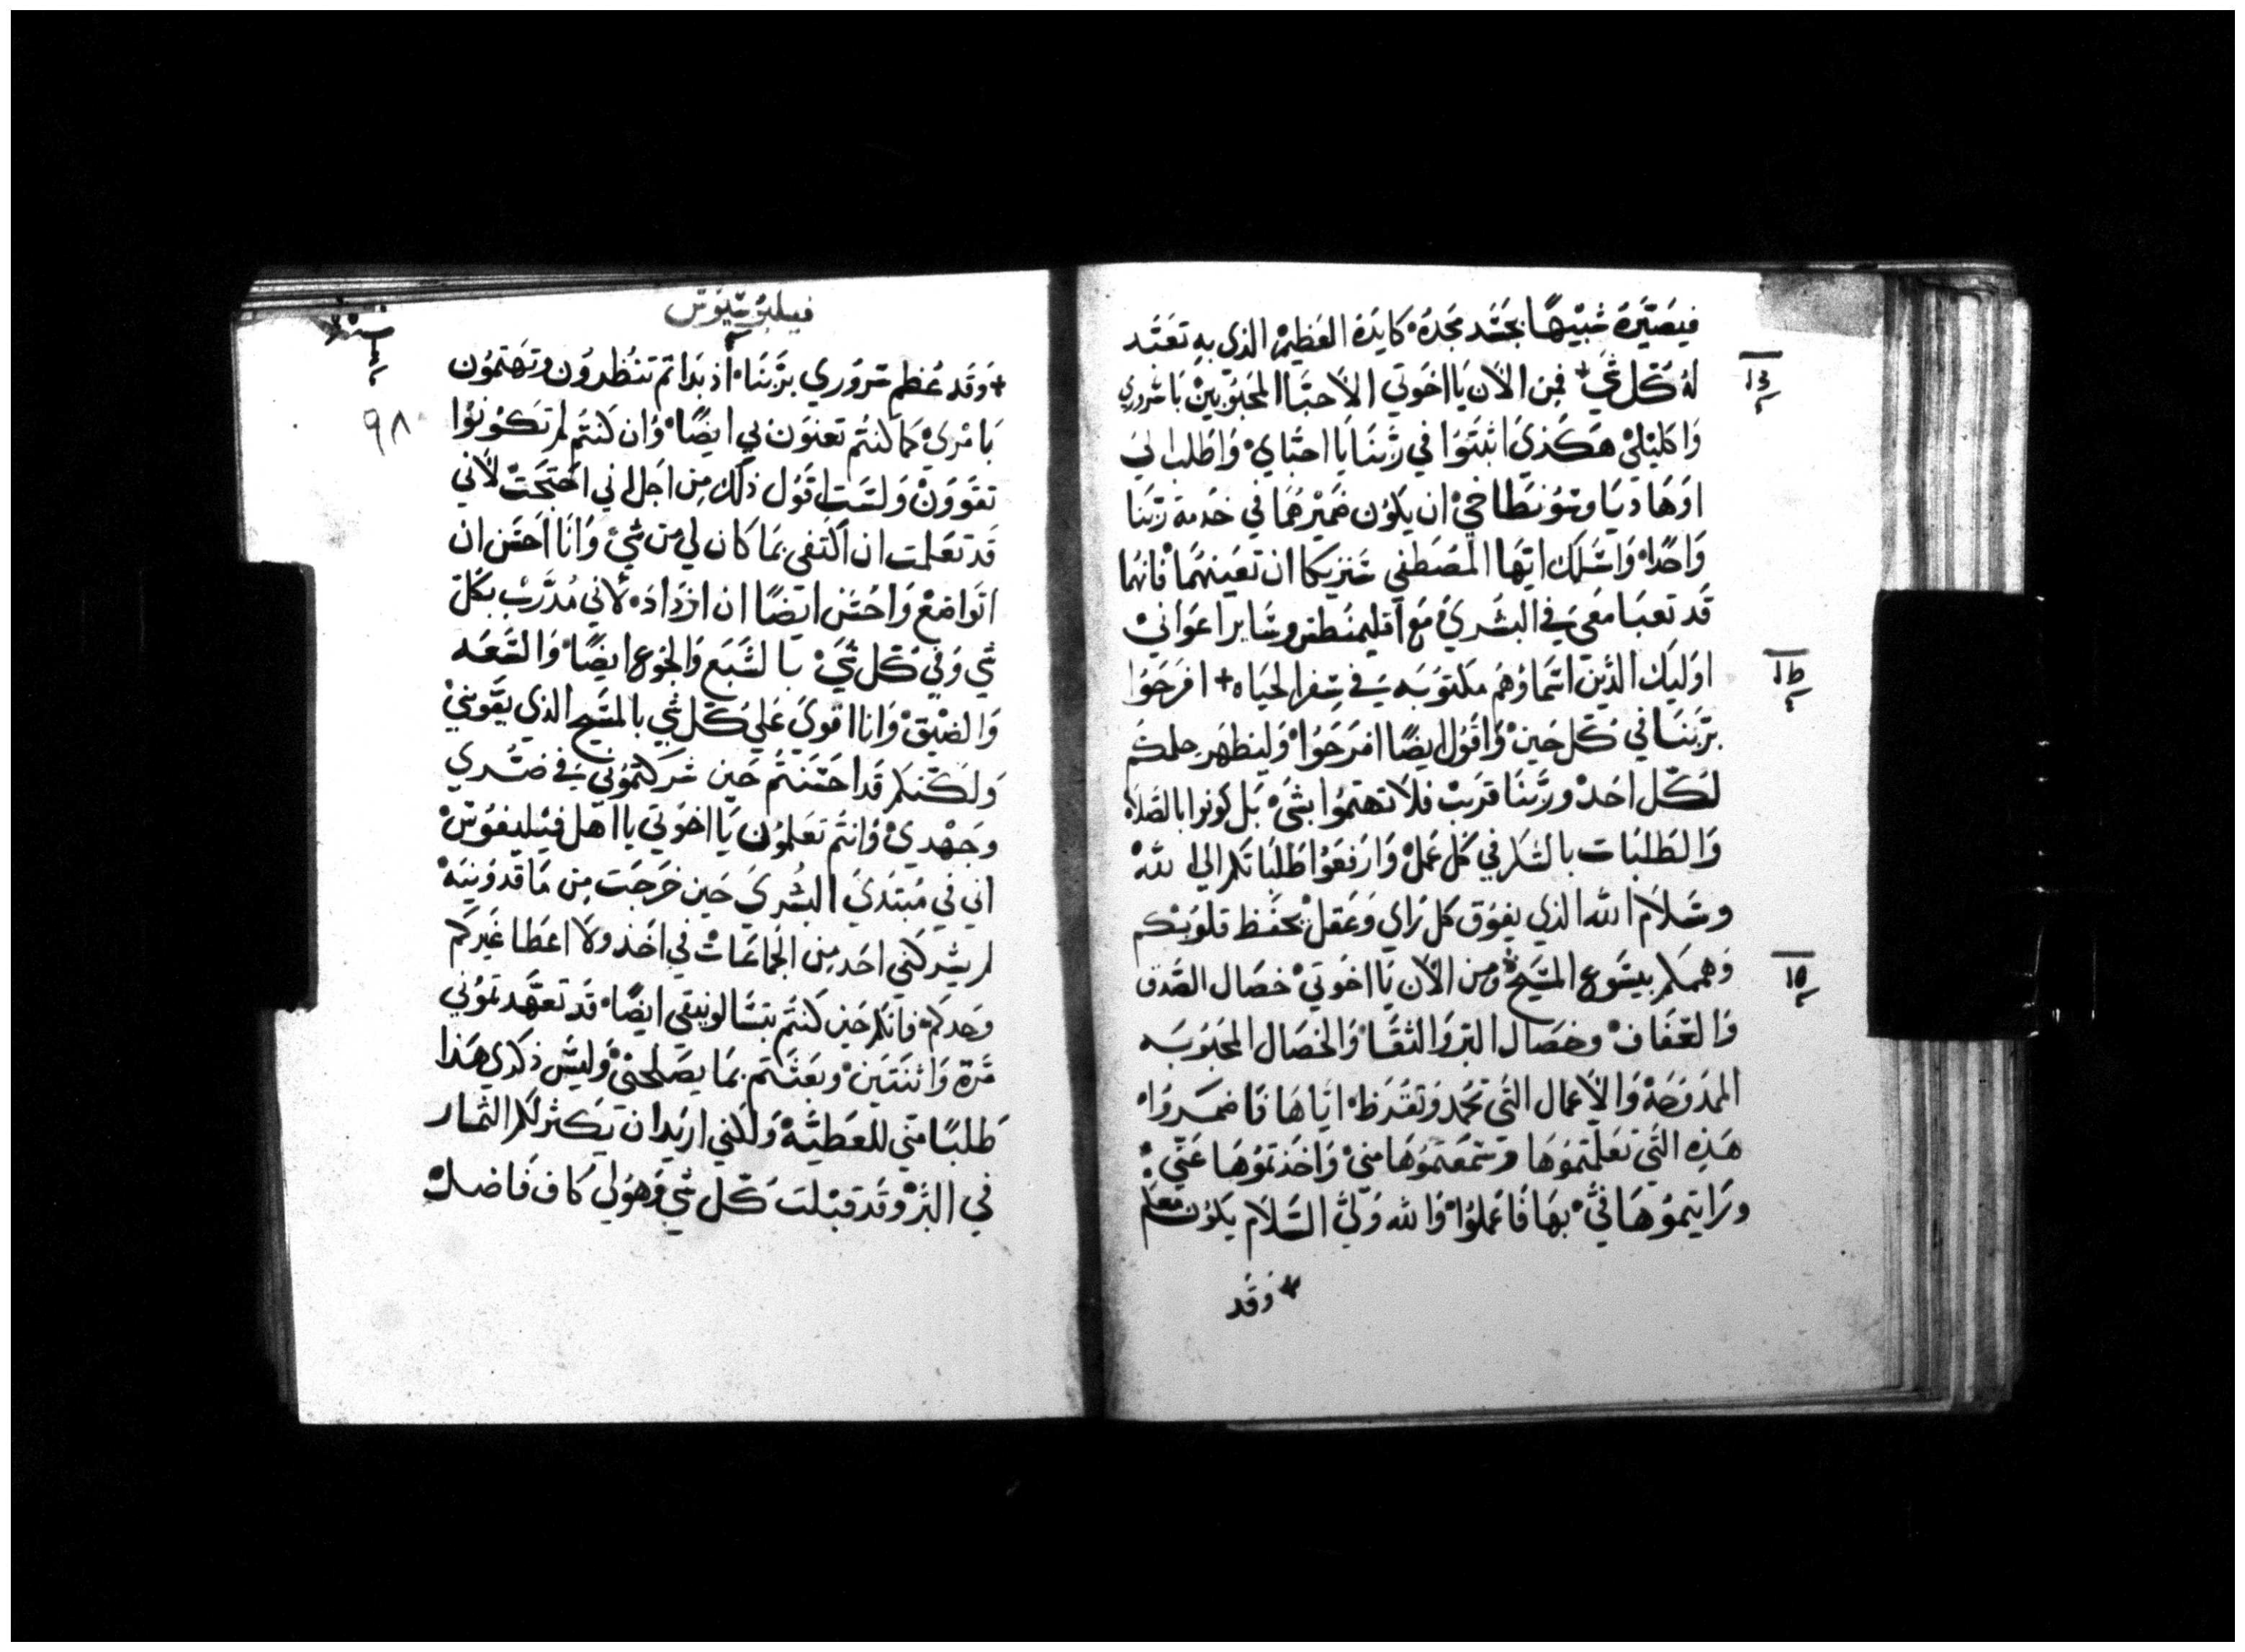 فيصَيّرَهُ شبيْهًا بجسَد مجَدهُ كايَدهُ العَظيمْ الذي بهِ تعَبَد
لهُ كلّ شيَ + فمِن الاَن يَا اخوَتي الاَحبّا المحَبُوبيْنْ يَا سُروري
وَاكليْليْ هَكذيَ اثبتَوَا في رَبّنَا يَا احبّايْ وَاطلبُ الي
اوَهَاديَا وسُونطَاخيْ ان يكوُن ضميْرهُمَا في خدمة رَبّنَا
وَاحدًا وَاسْلك ايّهَا المصَطفي شَريكا ان تعَينهُمَا فانهَا
قَد تعبَا معَيَ في البشريَ مَعَ اقليمنُطس وسَاير اعَوَانيْ
اوَليَك الذَين اسمَاؤهُم مَكتوَبَه يَ في سِفر الحيَاه + افرَحَوُا
برَبنَا في كلّ حيَنْ وَاقوُل ايضًا افرَحَوُا وَليَظهَر حلمكُم
لكَلّ احَدْ ورَبّنَا قرَيبْ فلاَ تهتموُا بشَيْ بَل كونوا بالصَلاه
وَالطَلبَات بالشكر في كلّ عمَلْ وَارفعَوُا طَلبَاتكم الي الله
وسَلاَم الله الذي يفوَق كل رَاي وَعَقلْ يحفَظ قلوَبكُم
وَهممَكم بيسَوع المسَيحْ وَمن الاَن يَا اخوَتيْ خصَال الصَدق
وَالعَفَافْ وخصَال البرّ وَالتقَا وَالخصَال المحَبوَبَه
الممدَوحَهْ وَالاَعمال التَي تحمد وَتقرَظ ايَاهَا فَاضمرَوُا
هَذِه التَي تعَلمَتموُهَا وسَمعَتموُهَا منيْ وَاخَذتموُهَا عَنّي
ورَايتموُهَا فيّْ بهَا فَاعمَلوُا وَالله وَليّ السَلاَم يكوُن معكم
+ وَقَد
فيلبُوسيُوسَ
٩٨
+ وَقَد عُظم سُرَوري برَبّنَا اذ بَداتم تنظُروُن وتهَتموُن
بَامرَيْ كما كنتُم تعنوَن بي ايضًا وُان كنتم لمرتكوُنوُا
تقوَوَنْ وَلسَت اقَوُل ذلك من اجَل اني احَتجَت لأني
قَد تعَلمت ان اكتفي بمَا كان لي من شيْ وَانَا احَسَن ان
اتوَاضعْ وَاحُسَن ايَضًا ان ازدَادَ لأني مُدَرّبْ بكلّ
شي وَفي كلّ شيَْ بالشَبَع وَالجوُع ايضًا وَالسَعَه
وَالضيْقْ وَانا اقوَيَ عَلي كلّ شي بالمسَيح الذي يقَوّينيْ
وَلكنكم قَد احسَنتُم حَين شركتموُني يَ في ضُري
وَجهْديْ وَانتُم تعَلموُن يَا اخوُتي يا اهَل فيْليفوُسْ
اني في مبتَديَ البُشريَ حَين خرَجَت من مَاقدَوُنيَهْ
لم يشركني احَد مِن الجماعَاتْ في اخَذ وَلاَ اعَطا غَيرَكم
وَحدكم فانكم حَين كنتُم بتسَالونيقي ايضًا قَد تعَهّدتموُني
مَرة وَاثنتَيَنْ وبَعثَتم بمَا يصَلحنيْ وَليَس ذكري هَذا
طَلبًا منّي للعَطيّهْ وَلكنيّ ارَيَد ان يَكثر لكم الثمَار
في البرّ وَقَد قَبلت كلّ شي وَهوُ لي كاف فَاضلْ